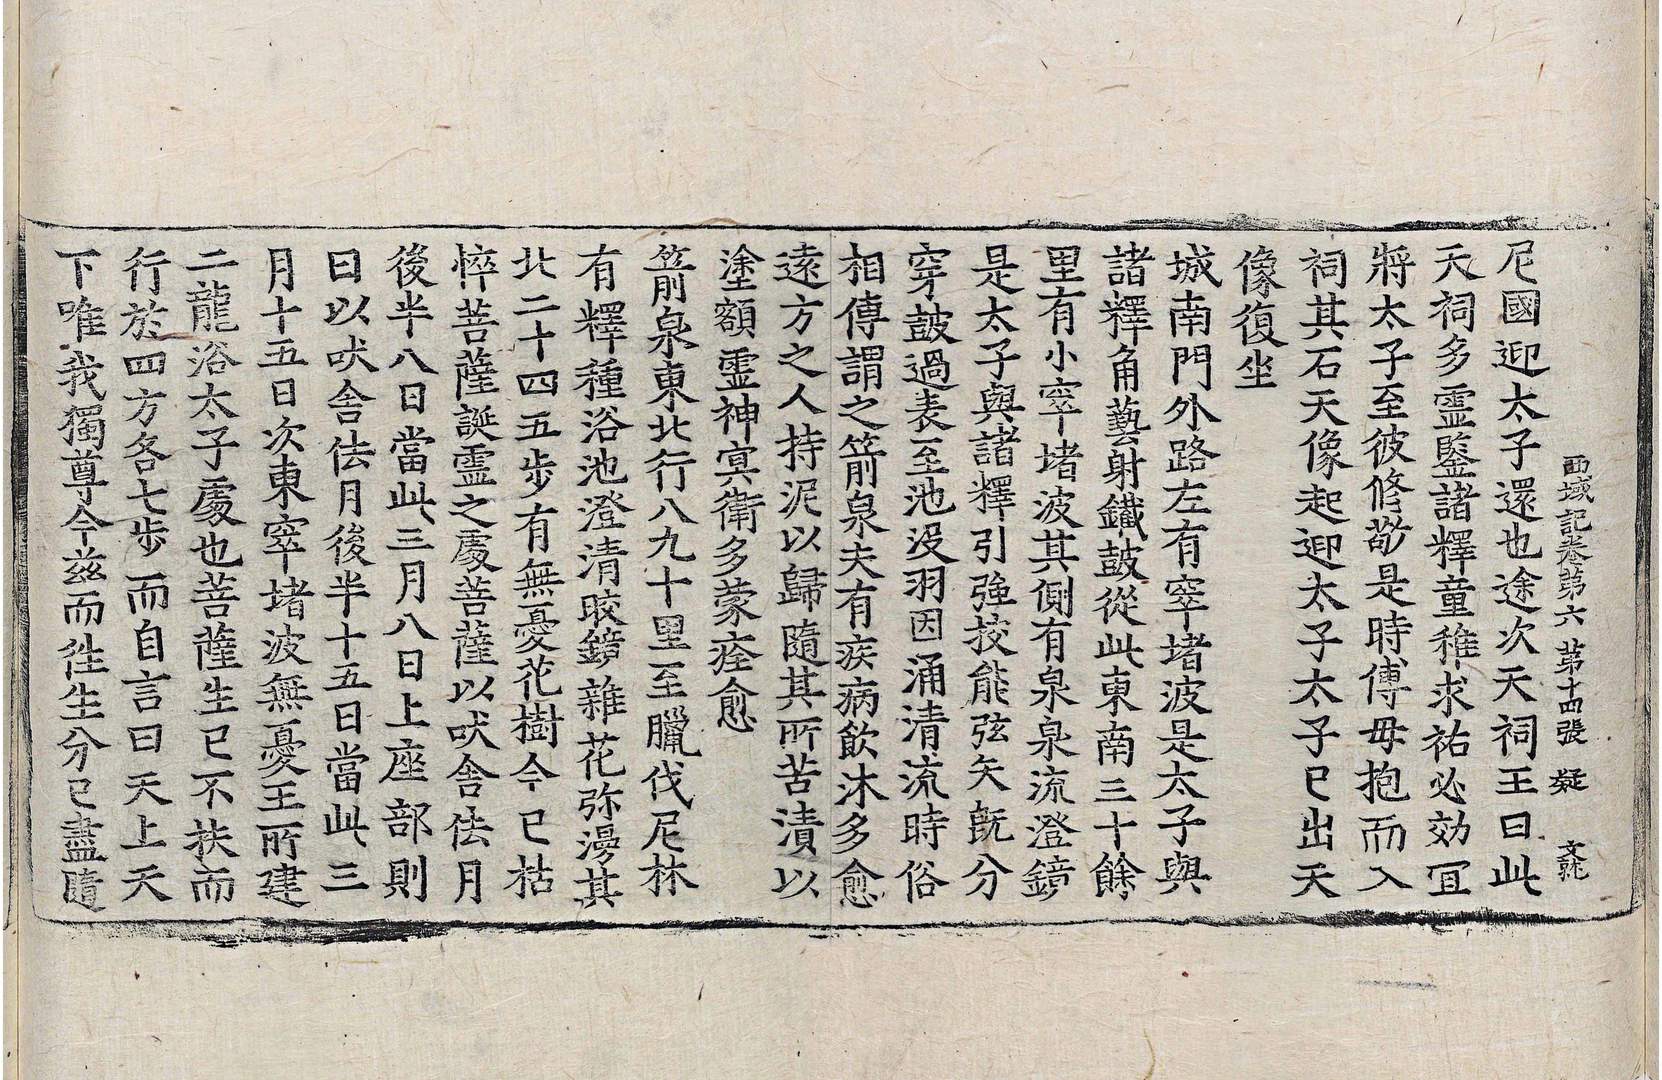 西域記卷第六 第十四張 疑 文䖍
尼國迎太子還也途次天祠王曰此
天祠多靈鑒諸釋童稚求祐必効宜
將太子至彼修敬是時傅母抱而入
祠其石天像起迎太子太子已出天
像復坐
城南門外路左有窣堵波是太子與
諸釋角藝射鐵皷從此東南三十餘
里有小窣堵波其側有泉泉流澄鏡
是太子與諸釋引強挍能弦矢旣分
穿皷過表至池没羽因涌清流時俗
相傳謂之箭泉夫有疾病飲沐多愈
遠方之人持泥以歸隨其所苦漬以
塗額靈神冥衛多蒙痊愈
箭泉東北行八九十里至臘伐尼林
有釋種浴池澄清皎鏡雜花弥漫其
北二十四五步有無憂花樹今已枯
悴菩薩誕靈之處菩薩以吠舍佉月
後半八日當此三月八日上座部則
曰以吠舍佉月後半十五日當此三
月十五日次東窣堵波無憂王所建
二龍浴太子處也菩薩生已不扶而
行於四方各七步而自言曰天上天
下唯我獨尊今兹而徃生分已盡隨